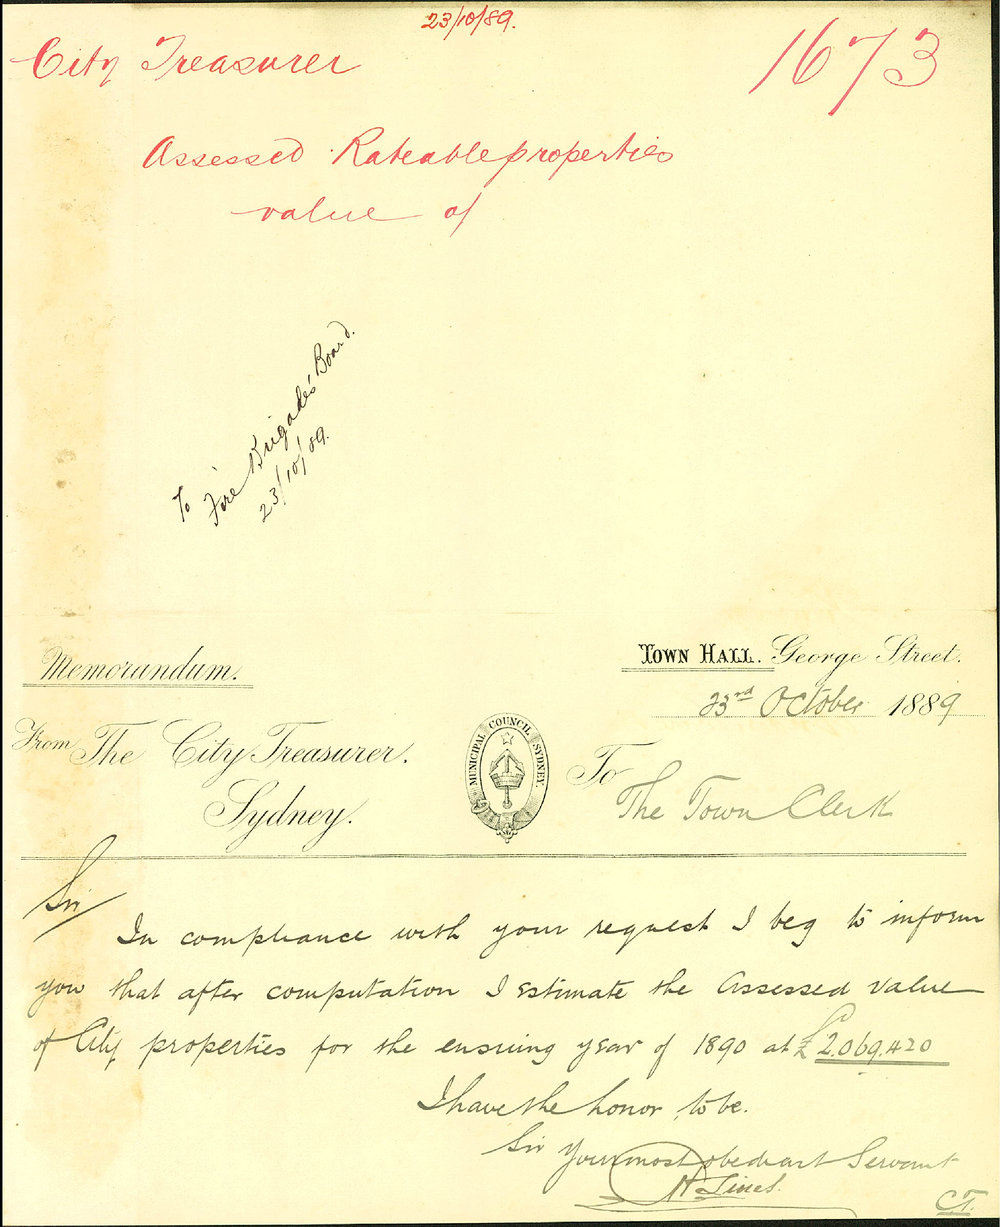 23/10/89.
City Treasurer
1673
Assessed Rateable properties
value of
To
Fire Brigade's Board.
23/10/89.
Memorandum.
TOWN HALL. George Street.
23rd October 1889
From The City Treasurer.
Sydney.
MUNICIPAL COUNCIL SYDNEY.
To
The Town Clerk
Sir
In compliance with your request I beg to inform
you that after computation I estimate the Assessed Value
of City properties for the ensuing year of 1890 at £2,069,420
I have the honor to be.
Sir Your most obedient Servant
C.T.